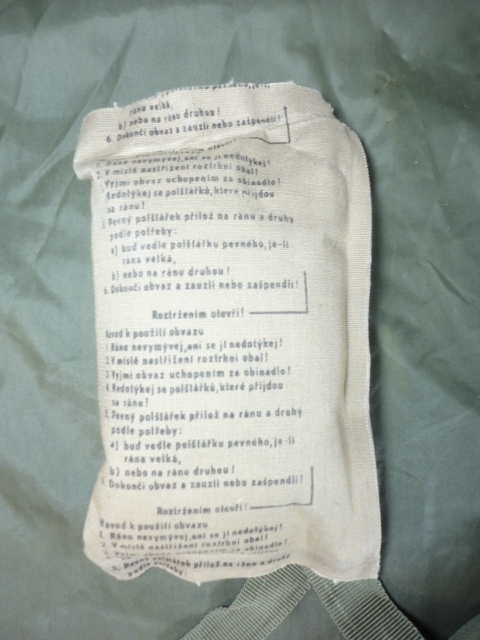 rána velká,
b) nebo na ránu druhou!
6. Dokonči obvaz a zauzli nebo zašpendli!
1. Ránu nevymývej, ani se jí nedotýkej!
2. V místě nastřižení roztrhni obal!
Vyjmi obvaz uchopením za obinadlo!
Nedotýkej se polštářků, které přijdou
na ránu!
Pevný polštářek přilož na ránu a druhý
podle potřeby:
a) buď vedle polštářku pevného, je-li
rána velká,
b) nebo na ránu druhou!
6. Dokonči obvaz a zauzli nebo zašpendli!
Roztržením otevři!
Návod k použití obvazu
1. Ránu nevymývej, ani se jí nedotýkej!
2. V místě nastřižení roztrhni obal!
3. Vyjmi obvaz uchopením za obinadlo!
4. Nedotýkej se polštářků, které přijdou
na ránu!
5. Pevný polštářek přilož na ránu a druhý
podle potřeby:
a) buď vedle polštářku pevného, je-li
rána velká,
b) nebo na ránu druhou!
Dokonči obvaz a zauzli nebo zašpendli!
Roztržením otevři!
Návod k použití obvazu
1. Ránu nevymývej, ani se jí nedotýkej!
2. V místě nastřižení roztrhni obal!
Vyjmi obvaz uchopením za obinadlo!
5. Pevný polštářek přilož na ránu a druhý
podle potřeby: